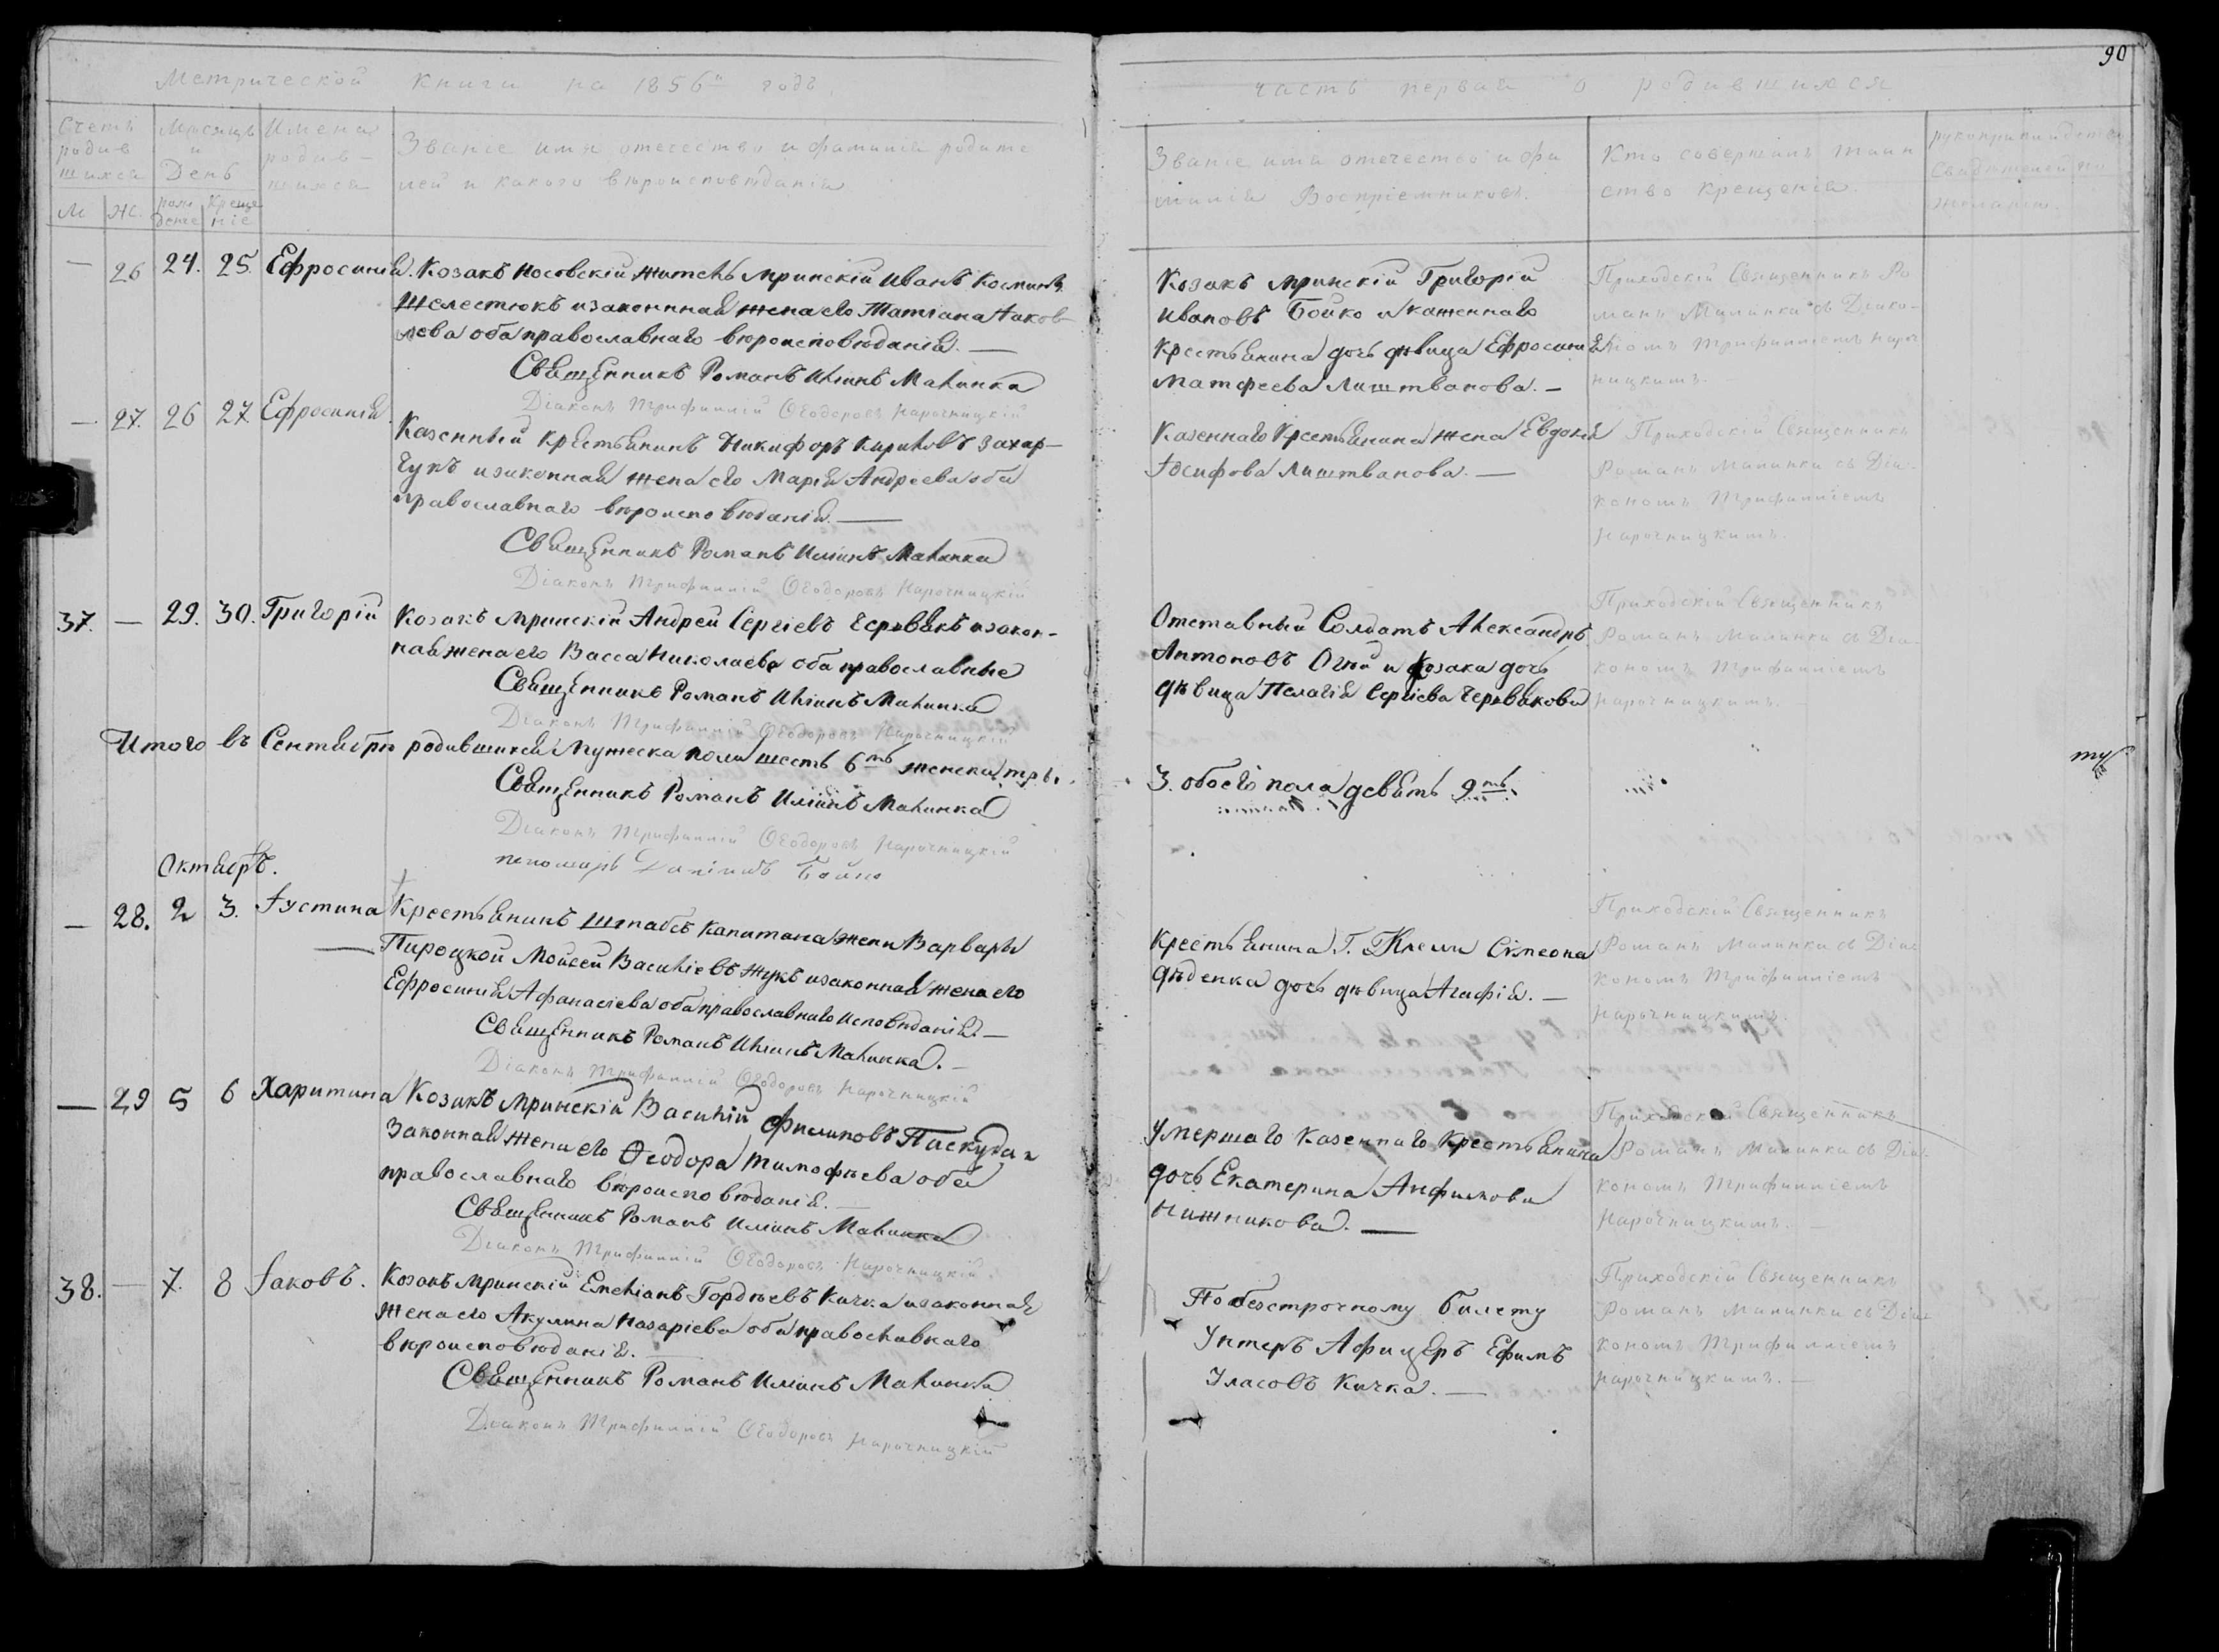 90
Метрической книги на 1856й годъ.
часть первая о родившихся
Счетъ родившихся
М. Ж.
Мѣсяцъ и День
рождение крещеніе
Имена родившихся
Званіе имя отечество и фамилія родите
лей и какого вѣроисповѣданія
Званіе имя отечество и фа
милія Воспріемниковъ.
Кто совершалъ таин
ство крещенія.
рукоприкладство
Свидѣтелей по
желанію.
— 26 24. 25. Ефросинія. Козакъ Носовскій житель Мринскій Иванъ Косминъ
Шелестюкъ и законная жена его Татіана Іаков
лева оба православнаго вѣроисповѣданія. —
Священникъ Романъ Иліинъ Малинка
Діаконъ Трифиллій Ѳеодоровъ Нарочницкій
Козакъ Мринскій Григорій
Ивановъ Бойко и казеннаго
Крестьянина дочь дѣвица Ефросинія
Матфеева Лиштванова. —
Приходскій Священникъ Ро
манъ Малинка съ Діако-
номъ Трифилліемъ Нароч
ницкимъ.
— 27. 26 27. Ефросинія
Казенный Крестьянинъ Никифоръ Кириловъ Захар-
чукъ и законная жена его Марія Андреева оба
православнаго вѣроисповѣданія. —
Священникъ Романъ Иліинъ Малинка
Діаконъ Трифиллій Ѳеодоровъ Нарочницкій
Казеннаго Крестьянина жена Евдокія
Іосифова Лиштванова. —
Приходскій Священникъ
Романъ Малинка съ Діа-
кономъ Трифилліемъ
Нарочницкимъ.
37. — 29. 30. Григорій Козакъ Мринскій Андрей Сергіевъ Червякъ и закон-
ная жена его Васса Николаева оба православные
Священникъ Романъ Иліинъ Малинка
Діаконъ Трифиллій Ѳеодоровъ Нарочницкій
Отставный Солдатъ Александръ
Антоновъ Огій и Козака дочь
дѣвица Пелагія Сергіева Червякова
Приходскій Священникъ
Романъ Малинка съ Діа-
кономъ Трифилліемъ
Нарочницкимъ. —
Итого въ Сентябрѣ родившихся Мужеска пола шесть 6ть женска три.
3. обоего пола девять 9ть.
Священникъ Романъ Иліинъ Малинка
Діаконъ Трифиллій Ѳеодоровъ Нарочницкій
пономарь Даніилъ Бойко
Октябрь.
— 28. 2 3. Іустина Крестьянинъ Штабсъ Капитана жены Варвары
Пироцкой Мойсей Василіевъ Жукъ и законная жена его
Ефросинія Афанасіева оба православнаго исповѣданія. —
Священникъ Романъ Иліинъ Малинка. —
Діаконъ Трифиллій Ѳеодоровъ Нарочницкій
Крестьянина Г. Симеона
Дѣденка дочь дѣвица Агафія. —
Приходскій Священникъ
Романъ Малинка съ Діа
кономъ Трифилліемъ
Нарочницкимъ.
— 29 5 6 Харитина Козакъ Мринскій Василій Филиповъ Паскуда и
законная жена его Ѳеодора Тимофѣева оба
православнаго вѣроисповѣданія. —
Священникъ Романъ Иліинъ Малинка
Діаконъ Трифиллій Ѳеодоровъ Нарочницкій
Умершаго Казеннаго Крестьянина
дочь Екатерина Анфилова
Нижникова. —
Приходской Священникъ
Романъ Малинка съ Діа-
кономъ Трифилліемъ
Нарочницкимъ. —
38. — 7. 8 Іаковъ. Козакъ Мринскій Емеліанъ Гордѣевъ Кичка и законная
жена его Акулина Назаріева оба православнаго
вѣроисповѣданія. —
Священникъ Романъ Иліинъ Малинка
Діаконъ Трифиллій Ѳеодоровъ Нарочницкій
По безстрочному билету
Унтеръ Афицеръ Ефимъ
Уласовъ Кичка. —
Приходскій Священникъ
Романъ Малинка съ Діа
кономъ Трифилліемъ
Нарочницкимъ. —